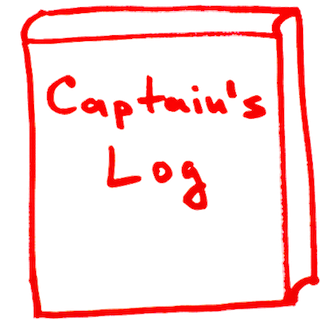 Captain's
Log